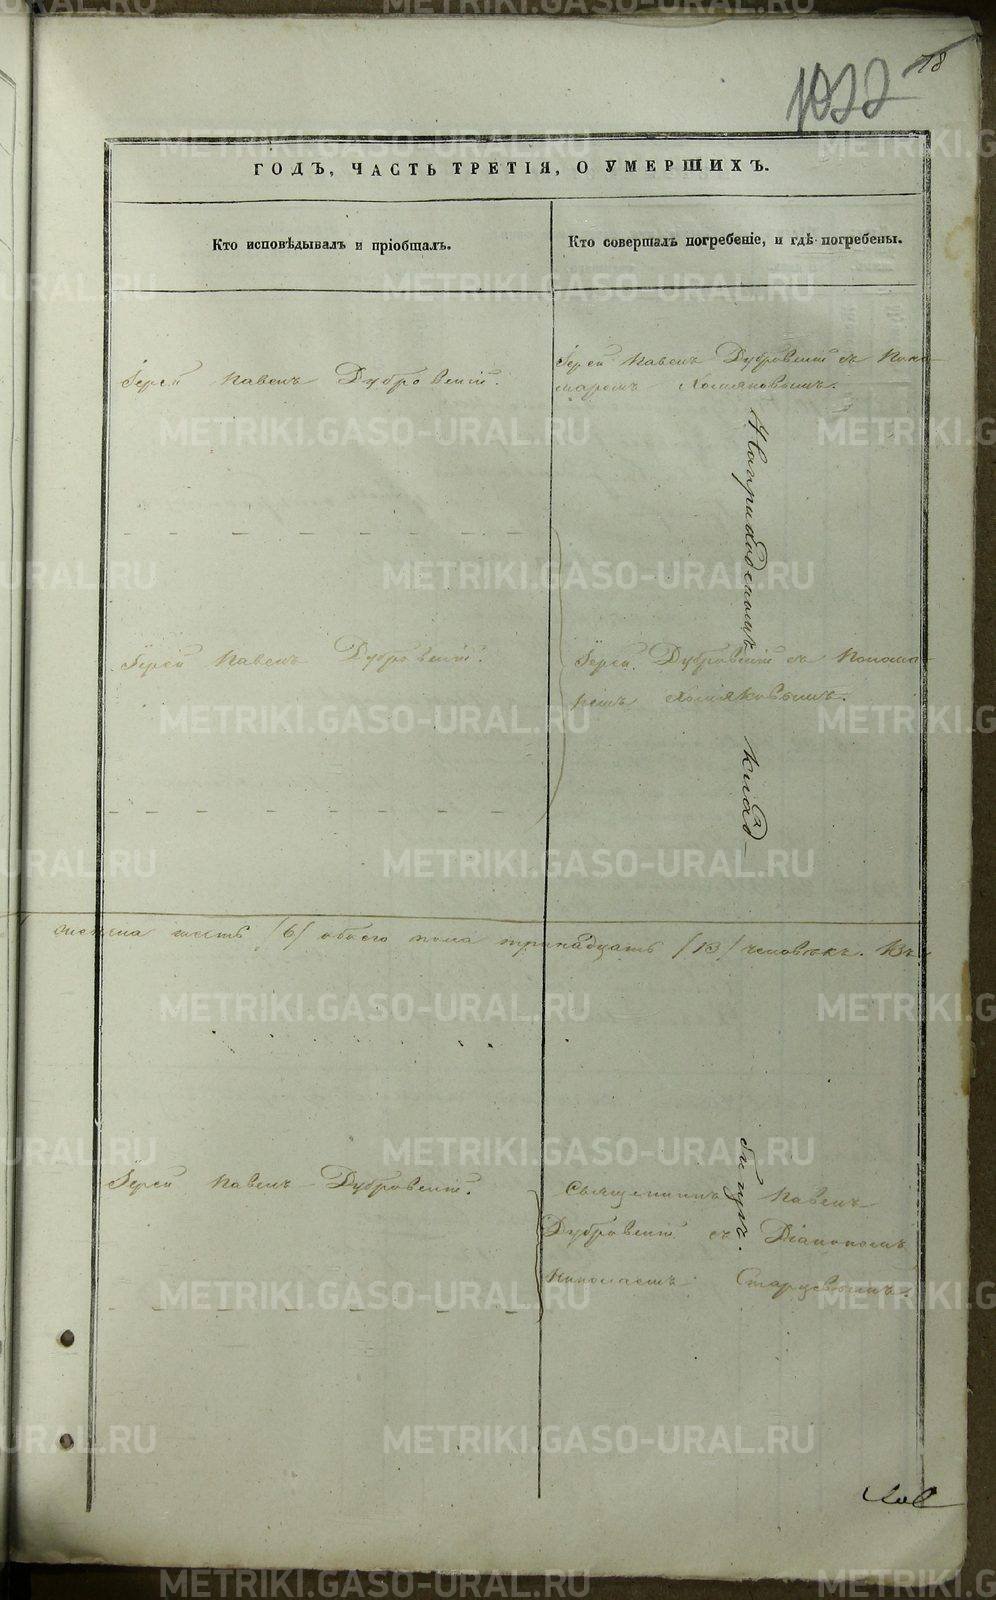 78
1022
ГОДЪ, ЧАСТЬ ТРЕТІЯ, О УМЕРШИХЪ.
Кто исповѣдывалъ и пріобщалъ.
Кто совершалъ погребеніе, и гдѣ погребены.
Іерей Павелъ Дубровскій.
Іерей Павелъ Дубровскій съ Поно-
маремъ Хомяковымъ.
На приходскомъ кладбищѣ.
Іерей Павелъ Дубровскій.
Іерей Дубровскій съ Понома-
ремъ Хомяковымъ.
женска шесть /6/ обоего пола тринадцать /13/ человѣкъ. Въ
Іерей Павелъ Дубровскій.
Священникъ Павелъ
Дубровскій съ Діакономъ
Николаемъ Старцевымъ.
METRIKI.GASO-URAL.RU